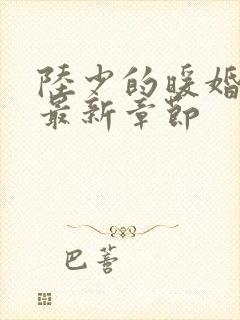 陸少的暖婚
最新章節
巴薔